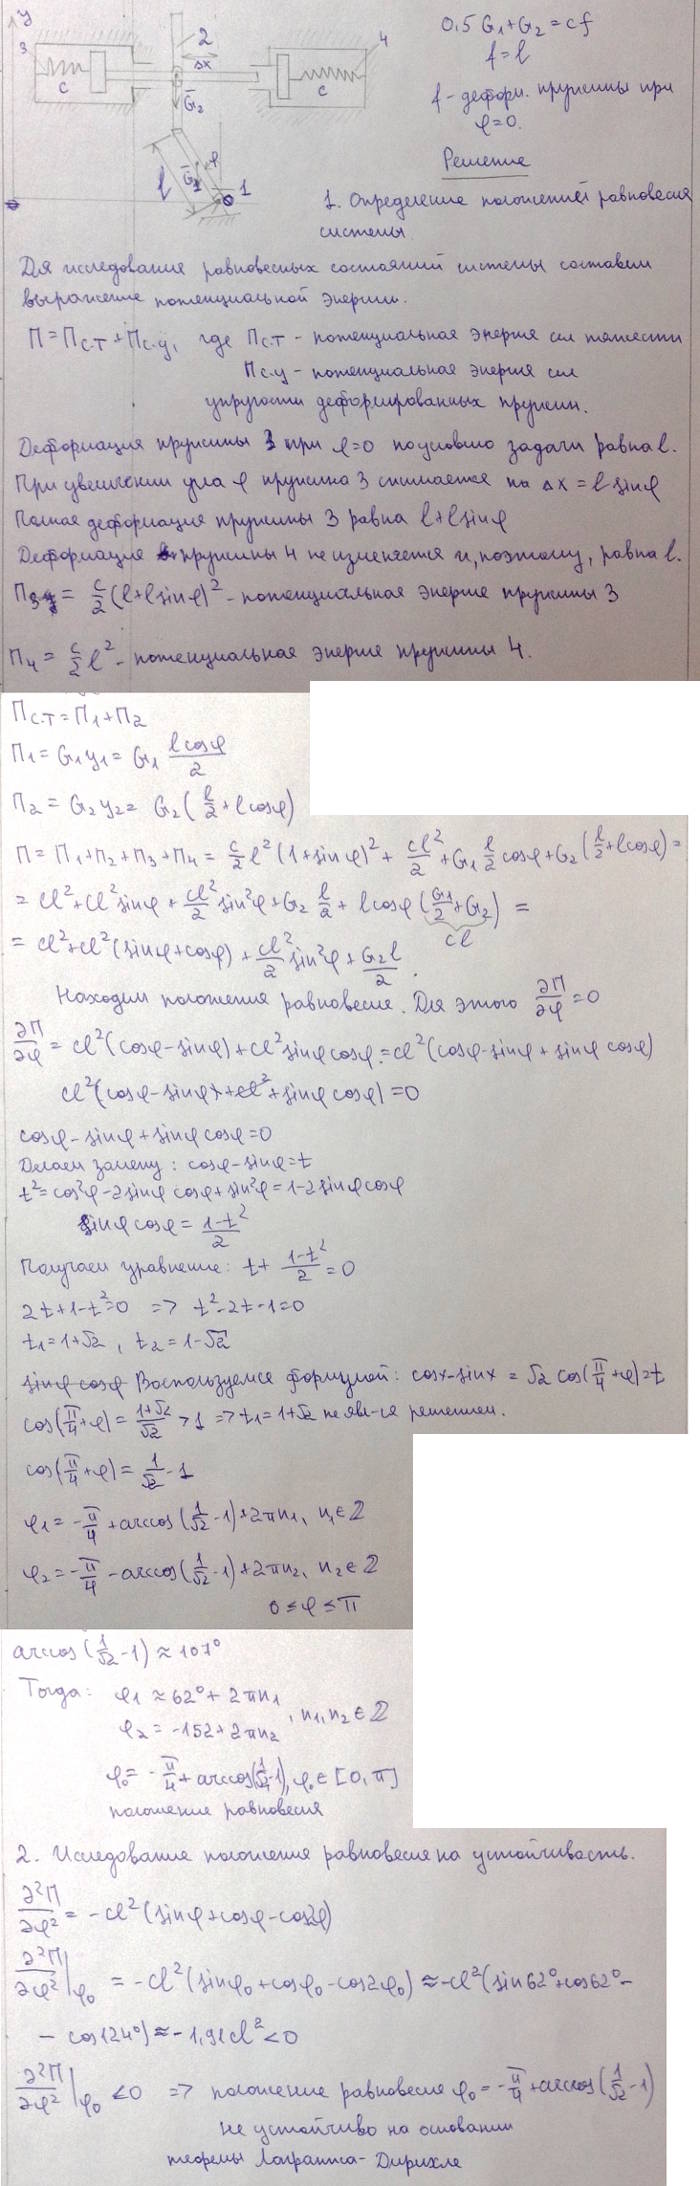 y
3
2
4
Δx
c
c
G̅₂
φ
l
G̅₁
1
0,5 G₁+G₂=cf
f=l
f - деформ. пружины при
φ=0.
Решение
1. Определение положений равновесия
системы
Для исследования равновесных состояний системы составим
выражение потенциальной энергии.
П=Пс.т+Пс.у, где Пс.т - потенциальная энергия сил тяжести
Пс.у - потенциальная энергия сил
упругости деформированных пружин.
Деформация пружины 3 при φ=0 по условию задачи равна l.
При увеличении угла φ пружина 3 сжимается на Δx = l sinφ
Полная деформация пружины 3 равна l+l sinφ
Деформация пружины 4 не изменяется и, поэтому, равна l.
П₃ = c/2 (l+l sinφ)² - потенциальная энергия пружины 3
П₄ = c/2 l² - потенциальная энергия пружины 4.
Пс.т = П₁+П₂
П₁ = G₁y₁ = G₁ l cosφ/2
П₂ = G₂y₂ = G₂(l/2 + l cosφ)
П = П₁+П₂+П₃+П₄ = c/2 l²(1+sinφ)² + cl²/2 + G₁ l/2 cosφ + G₂(l/2 + l cosφ) =
= cl²+cl² sinφ + cl²/2 sin²φ + G₂ l/2 + l cosφ (G₁/2 + G₂) =
cl
= cl²+cl²(sinφ+cosφ) + cl²/2 sin²φ + G₂l/2.
Находим положения равновесия. Для этого ∂П/∂φ = 0
∂П/∂φ = cl²(cosφ-sinφ)+cl² sinφ cosφ = cl²(cosφ-sinφ + sinφ cosφ)
cl²(cosφ-sinφ + sinφ cosφ) = 0
cosφ - sinφ + sinφ cosφ = 0
Делаем замену: cosφ - sinφ = t
t² = cos²φ - 2 sinφ cosφ + sin²φ = 1-2 sinφ cosφ
sinφ cosφ = (1-t²)/2
Получаем уравнение: t + (1-t²)/2 = 0
2t+1-t²=0 => t²-2t-1=0
t₁=1+√2, t₂=1-√2
sinφ cosφ Воспользуемся формулой: cosx-sinx = √2 cos(π/4+φ)=t
cos(π/4+φ) = (1+√2)/√2 > 1 => t₁=1+√2 не явл-ся решением.
cos(π/4+φ) = 1/√2 - 1
φ₁ = -π/4 + arccos(1/√2 - 1)+2πn₁, n₁∈ℤ
φ₂ = -π/4 - arccos(1/√2 - 1)+2πn₂, n₂∈ℤ
0≤φ≤π
arccos(1/√2 - 1) ≈ 107°
Тогда: φ₁ ≈ 62°+2πn₁
φ₂ = -152+2πn₂ , n₁,n₂∈ℤ
φ₀ = -π/4 + arccos(1/√2 - 1), φ₀∈[0,π]
положение равновесия
2. Исследование положения равновесия на устойчивость.
∂²П/∂φ² = -cl²(sinφ+cosφ-cos2φ)
∂²П/∂φ²|φ₀ = -cl²(sinφ₀+cosφ₀-cos2φ₀) ≈ -cl²(sin62°+cos62°-
- cos124°) ≈ -1,91cl² < 0
∂²П/∂φ²|φ₀ < 0 => положение равновесия φ₀ = -π/4 + arccos(1/√2 - 1)
не устойчиво на основании
теоремы Лагранжа-Дирихле